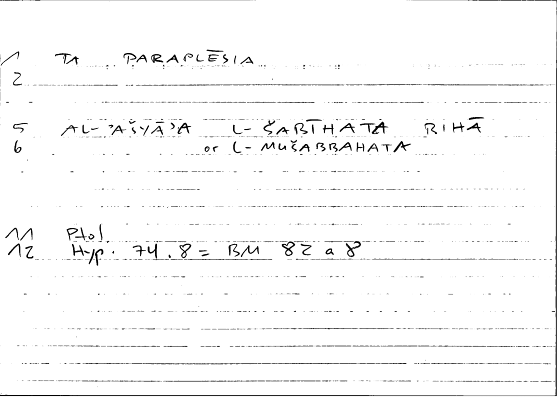 1 TA PARAPLĒSIA
2
5 AL-'AŠYĀ'A L-ŠABĪHATA BIHĀ
6 or L-MUŠABBAHATA
11 Ptol.
12 Hyp. 74.8 = BM 82 a 8